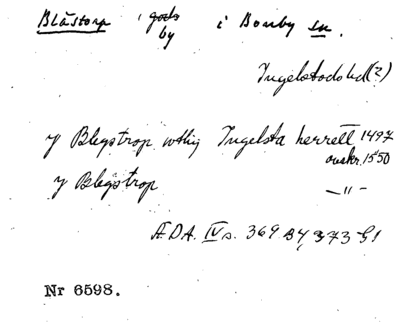 Blästorp i gods i Bomby sn.
by
Ingelstads hd (?)
y Blegstrop wthi Ingelsta herrett 1497
avskr. 1550
y Blegstrop —"—
Æ.D.A. IV s. 369 B4, 373 G1
Nr 6598.